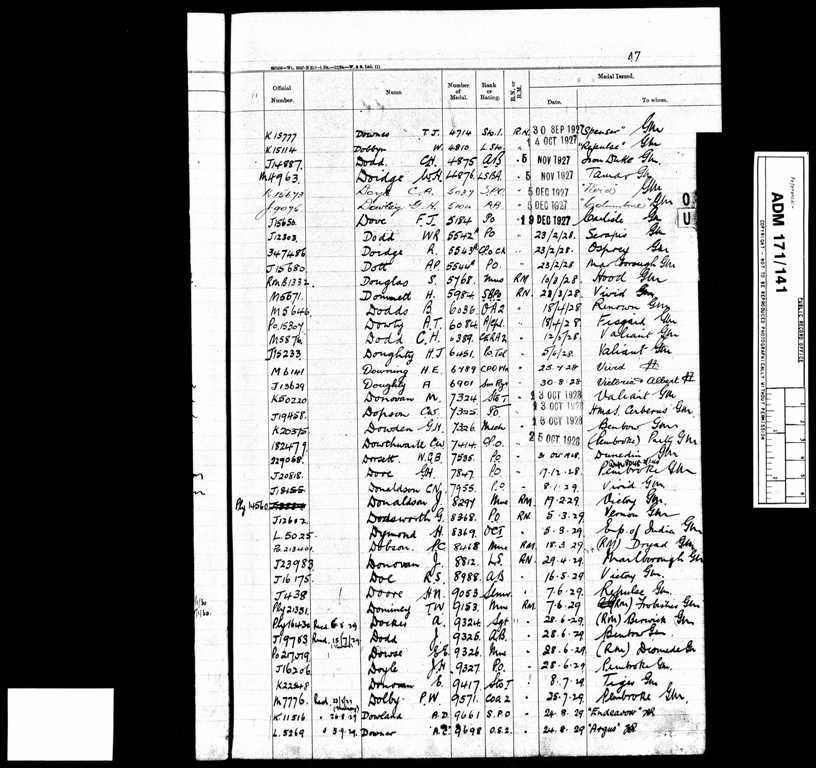 47
Official Number. Name Number of Medal. Rank or Rating. R.N. or R.M. Medal Issued.
Date. To whom.
K 15777 Downes T.J. 4714 Sto.1. R.N. 30 SEP 1927 "Spenser" Gnr
K 15114 Dobbyn W. 4810 L.Sto. 14 OCT 1927 "Repulse" Gnr
J14887. Dodd C.H. 4875 A.B. 5 NOV 1927 Iron Duke Gnr.
M4963. Doidge W.H. 4876 5 NOV 1927 Tamar Gnr
K 15673 Doyle C.A. 5037 S.P.O. 5 DEC 1927 Gnr
J 9076 Dowley G.H. 5104 A.B. 5 DEC 1927 "Columbine" Gnr
J15650. Dove F.J. 5184 Po 19 DEC 1927 Carlisle Gnr
J12303. Dodd WR 5542 PO 23/2/28. Serapis Gnr
347486 Doidge R. 5543 23/2/28. Osprey Gnr
J15680 Dott A.P. 5544 P.O. 23/2/28 Marlborough Gnr
RMB1332. Douglas S. 5768. Mus RM 10/3/28. Hood Gnr
M5671. Dommett H. 5984 RN. 28/3/28. Vivid Gnr
M5646 Dodds B. 6036 OA2 18/4/28 Renown Gnr
Po.15307 Dowty A.T. 6084 18/4/28. Fisgard Gnr
M5876. Dodd C.H. 6389. 12/5/28. Valiant Gnr
J15233. Doughty H.J 6451. Po.Tel 5/6/28. Valiant Gnr
M6141 Downing H.E. 6789 C.P.O.Wr 25.7.28 Vivid
J13629 Doughty A 6901 30.8.28 Victoria & Albert
K20220 Donovan M. 7324 Sto 1 13 OCT 1928 Valiant Gnr
J19458. Dopson 7325. Po 13 OCT 1928 Hmas. Cerberus Gnr.
K20375 Dowden G.H. 7326 Mech 16 OCT 1928 Benbow Gnr.
182479 Dowthwaite 7414. C.P.O. 25 OCT 1928 (Pembroke) Gnr
229068. Dorsett W.G.B. 7535. P.O. Dunedin Gnr
J20818. Dore G.H. 7847. P.O 17.12.28. Pembroke Gnr
J18155 Donaldson C.N. 7955. P.O 8.1.29. Vivid Gnr
Ply 14560 Donaldson J. 8297 Mne RM 19.2.29 Victory Gnr.
J12602 Dodsworth G. 8368. P.O RN. 5.3.29. Vernon Gnr.
L.5025. Dymond H. 8369. 5.3.29. Emp. of India Gnr
Po.213401 Dobson P.C 8468 Mne RM. 18.3.29. (RM) Dryad Gnr
J23983 Donovan J. 8812. L.S. RN. 29.4.29. Marlborough Gnr
J16175. Doe R.S. 8988. A.B 16.5.29. Victory Gnr.
J438 Doore H.N. 9053. 7.6.29. Repulse Gnr
Ply 21351. Dominey T.W 9153. Mne RM 7.6.29 (RM) Frobisher Gnr
Ply 16430 Recd. 6.8.29 Docker A. 9324. Sgt 28.6.29. (RM) Berwick Gnr
J19783 Recd. 15/7/29 Dodd J. 9325. A.B. 28.6.29. Benbow Gnr.
Dowse 9326. Mne 28.6.29. (RM) Diomede Gnr
J16206 Doyle J.H 9327. P.O. 28.6.29 Pembroke Gnr.
K22248 Donovan E. 9417. Sto I 8.7.29. Tiger Gnr
M7776. Recd. Dolby P.W. 9571. 25.7.29. Pembroke Gnr.
K 11516 " 26.8.29 Dowland A.D. 9661 S.P.O 24.8.29 "Endeavour"
L.5269 " 3.9.29. Downer A.C. 9698 O.S.2. 24.8.29 "Argus"
Reference:-
ADM 171/141
PUBLIC RECORD OFFICE
COPYRIGHT - NOT TO BE REPRODUCED PHOTOGRAPHICALLY WITHOUT PERMISSION